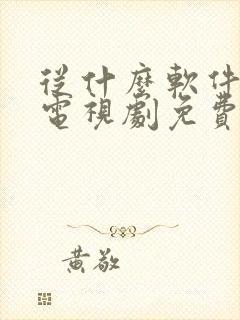 從什麼軟件
電視劇免費
黃敬